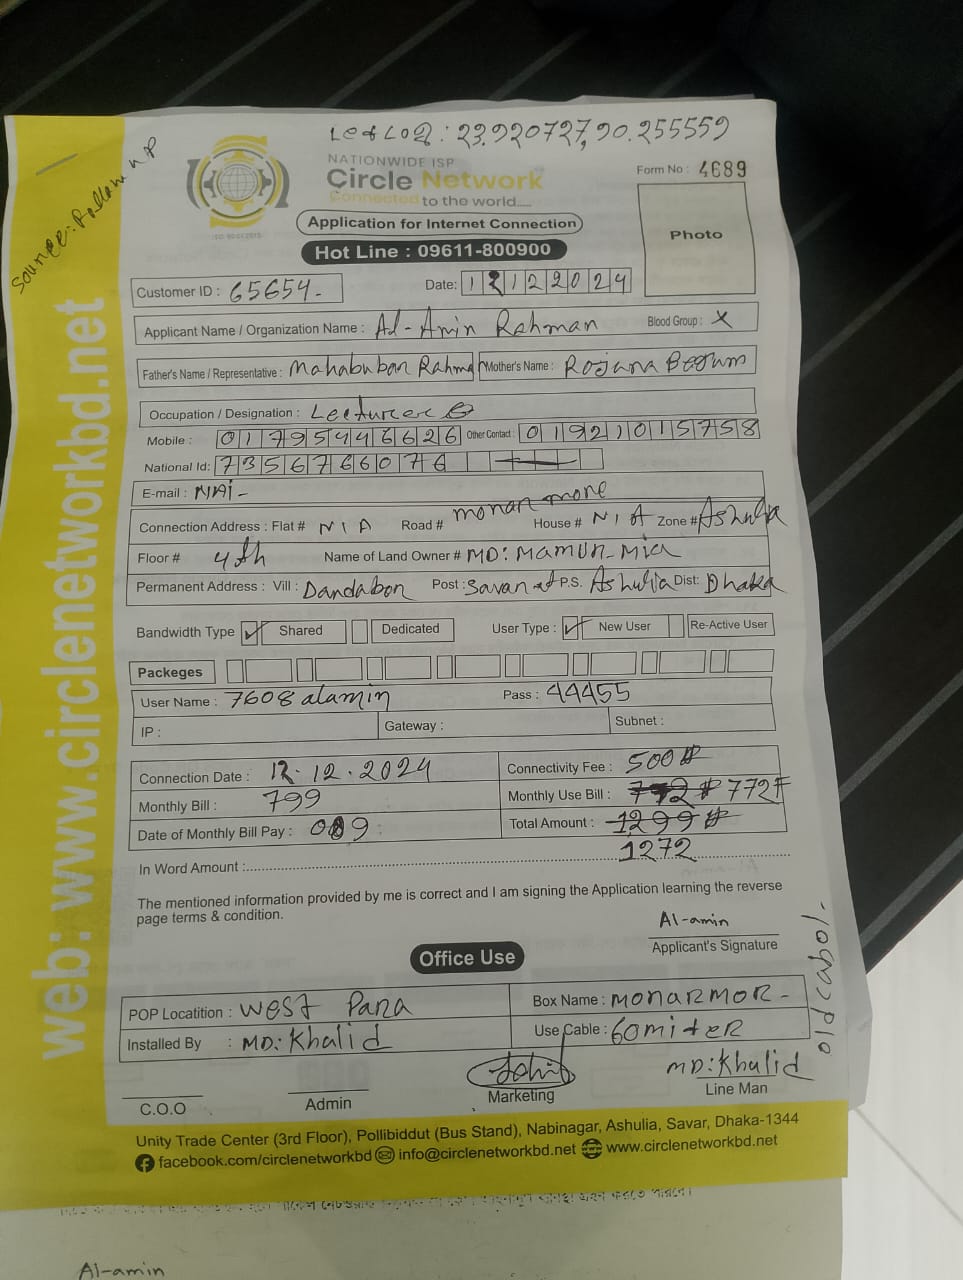 Let Log: 23.920727,90.255559
source: Follow up
NATIONWIDE ISP
Circle Network
Connected to the world.....
ISO 9001:2015
Form No : 4689
Application for Internet Connection
Hot Line : 09611-800900
Photo
Customer ID : 65654-
Date: 12122024
Applicant Name / Organization Name : Al-Amin Rahman
Blood Group : X
Father's Name / Representative : Mahabubar Rahma
Mother's Name : Rojana Begum
Occupation / Designation : Lecturer
Mobile : 01795446626 Other Contact : 01921015758
National Id: 7356766076
E-mail : N/A-
Connection Address : Flat # N/A Road # monar more House # N/A Zone # Ashulia
Floor # 4th Name of Land Owner # MD: Mamun-Mia
Permanent Address : Vill : Dandabor Post : Savar P.S. Ashulia Dist: Dhaka
Bandwidth Type ✓ Shared Dedicated User Type : ✓ New User Re-Active User
Packeges
User Name : 7608alamin Pass : 44455
IP : Gateway : Subnet :
Connection Date : 12.12.2024 Connectivity Fee : 500
Monthly Bill : 799 Monthly Use Bill : 772 772
Date of Monthly Bill Pay : 09 Total Amount : 1299
1272
In Word Amount :
The mentioned information provided by me is correct and I am signing the Application learning the reverse
page terms & condition.
Al-amin
Applicant's Signature
Office Use
POP Locatition : West Para Box Name : MONARMOR-
Installed By : MD: Khalid Use Cable : 60miter
MD: Khalid
C.O.O Admin Marketing Line Man
Unity Trade Center (3rd Floor), Pollibiddut (Bus Stand), Nabinagar, Ashulia, Savar, Dhaka-1344
facebook.com/circlenetworkbd info@circlenetworkbd.net www.circlenetworkbd.net
web: www.circlenetworkbd.net
Al-amin